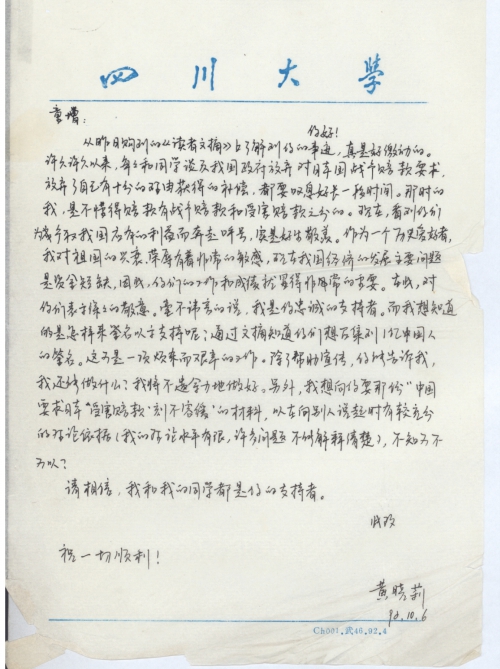 四川大學
童增：
你好！
从昨日购到的《读者文摘》上了解到你的事迹，真是好激动的。
许久许久以来，每每和同学谈及我国政府放弃对日本国战争赔款要求，
放弃了自己有十分的理由获得的补偿，都要叹息好长一段时间。那时的
我，是不懂得赔款有战争赔款和受害赔款之分的。现在，看到你们
为争取我国应有的利益而奔走呼号，实是好生敬羡。作为一个历史爱好者，
我对祖国的兴衰荣辱有着非常的敏感，现在我国经济的发展主要问题
是资金短缺，因此，你们的工作和成绩就显得非常的重要。在此，对
你们表示深深的敬意，毫不讳言的说，我是你忠诚的支持者。而我想知道
的是怎样来签名以示支持呢？通过文摘知道你们想召集到1亿中国人
的签名。这可是一项烦杂而艰辛的工作。除了帮助宣传，你能告诉我，
我还能做什么？我将不遗余力地做好。另外，我想向你要那份“中国
要求日本‘受害赔款’刻不容缓”的材料，以在向别人谈起时有较充分
的理论依据（我的理论水平有限，许多问题不能解释清楚），不知可不
可以？
请相信，我和我的同学都是你的支持者。
此致
祝一切顺利！
黄晓莉
92.10.6
Ch001.武46.92.4